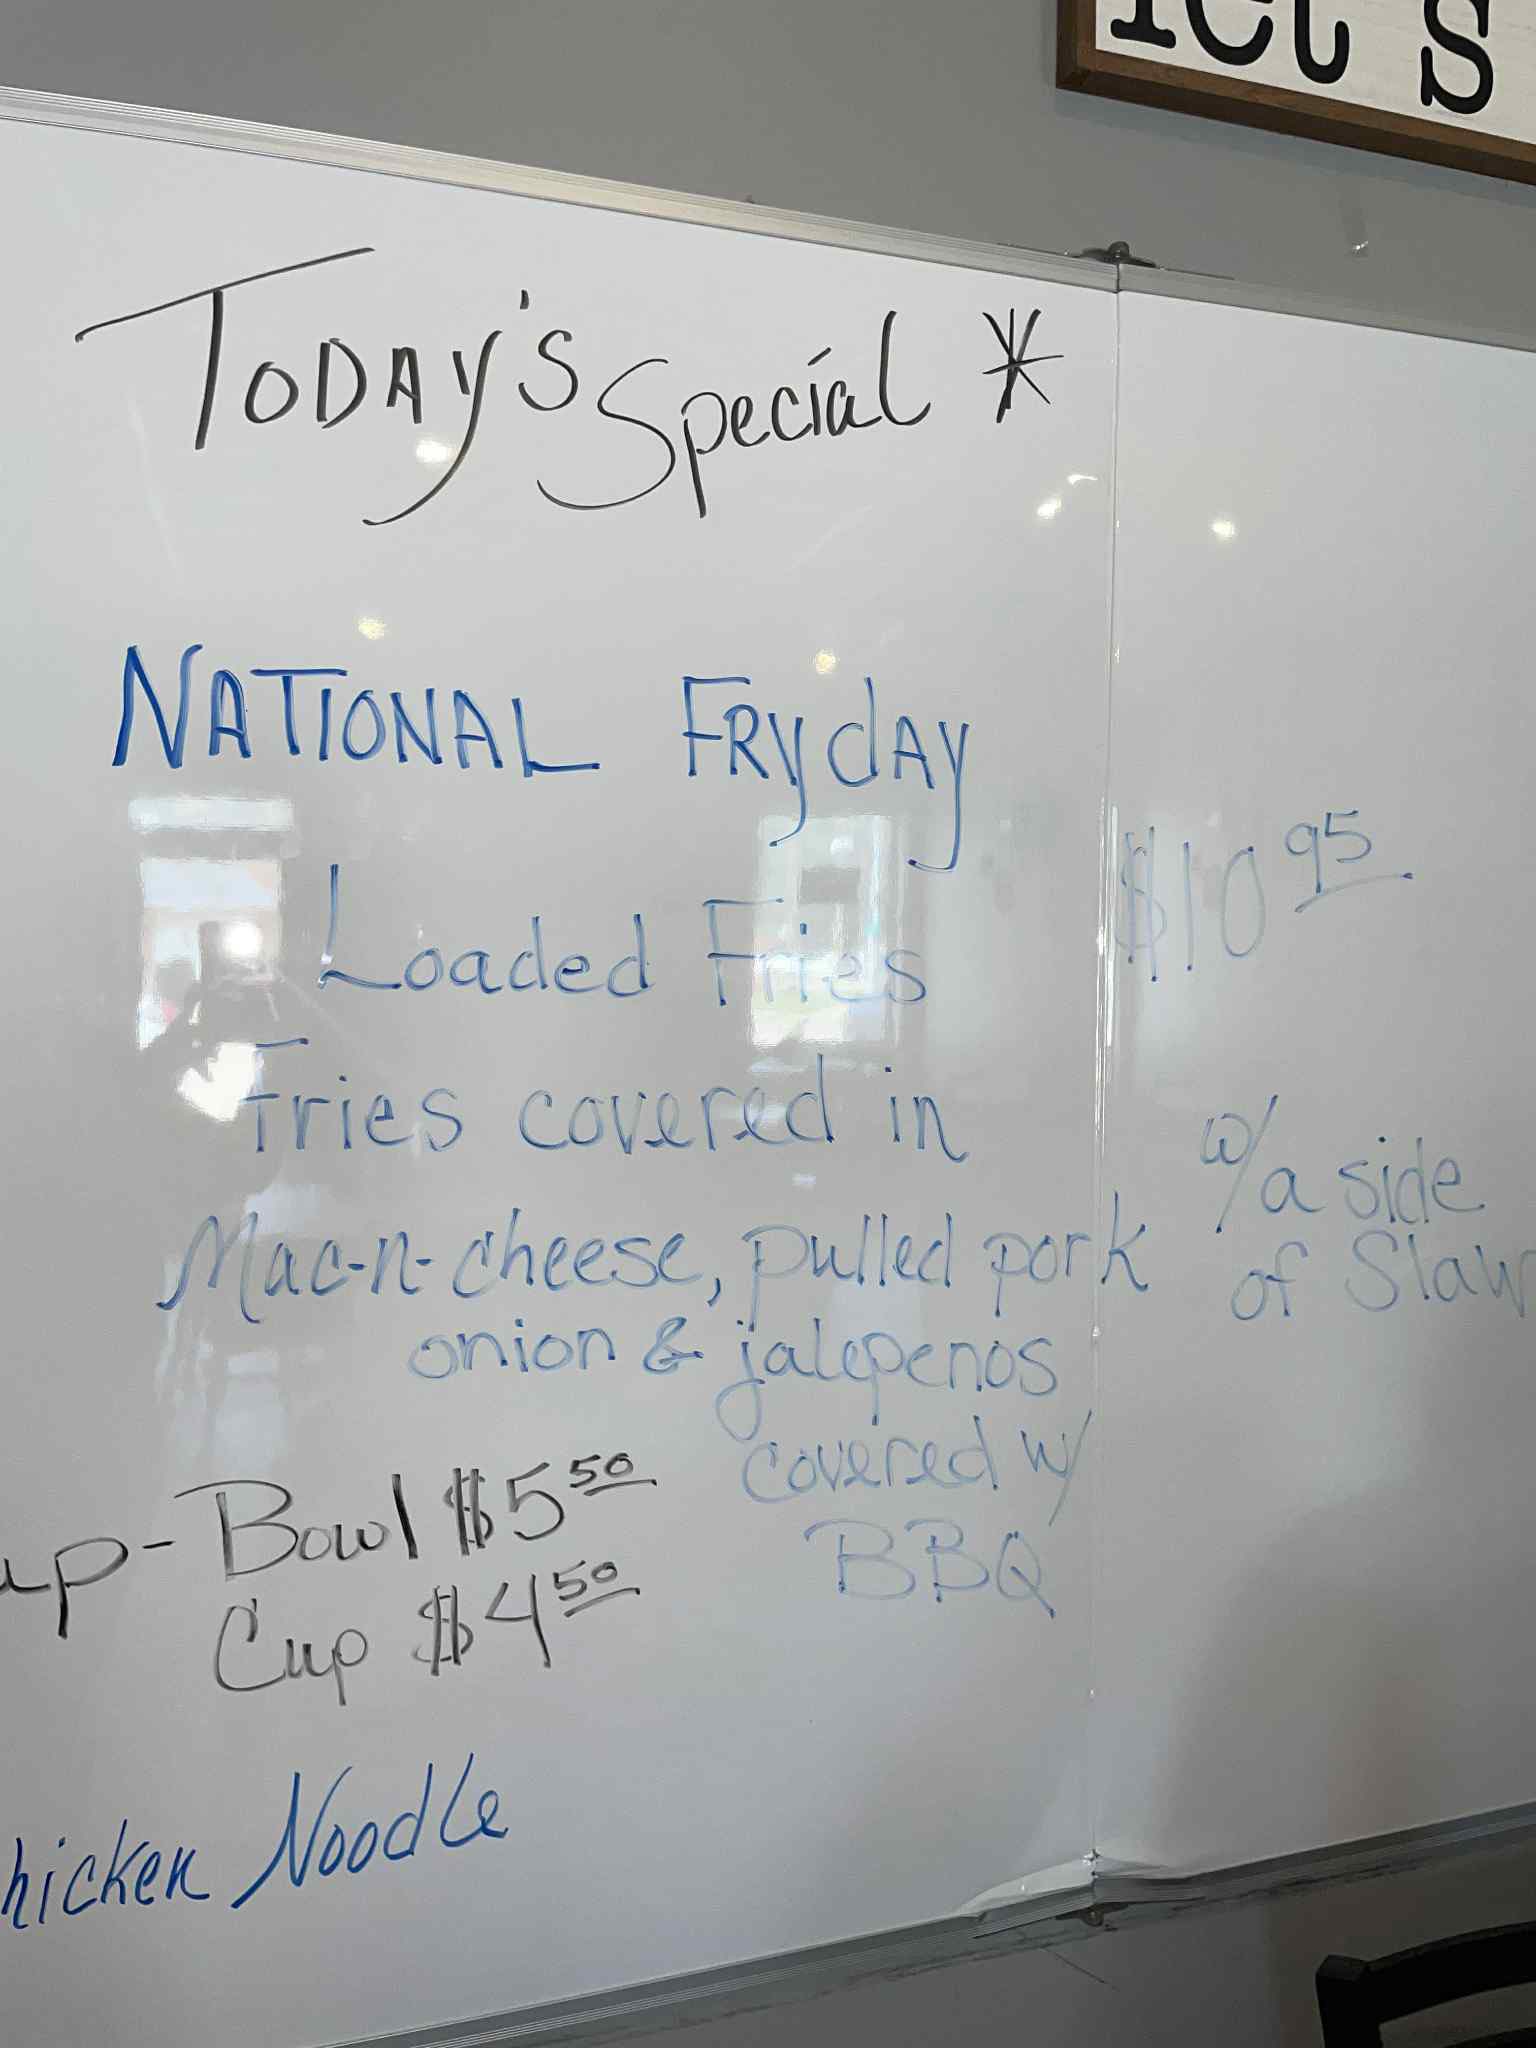 let's
TODAY'S Special *
NATIONAL FRYdAY
Loaded Fries $10 95
Fries covered in
w/a side
Mac-n-cheese, pulled pork
of Slaw
onion & jalepenos
covered w/
BBQ
up - Bowl $5 50
Cup $4 50
hicken Noodle